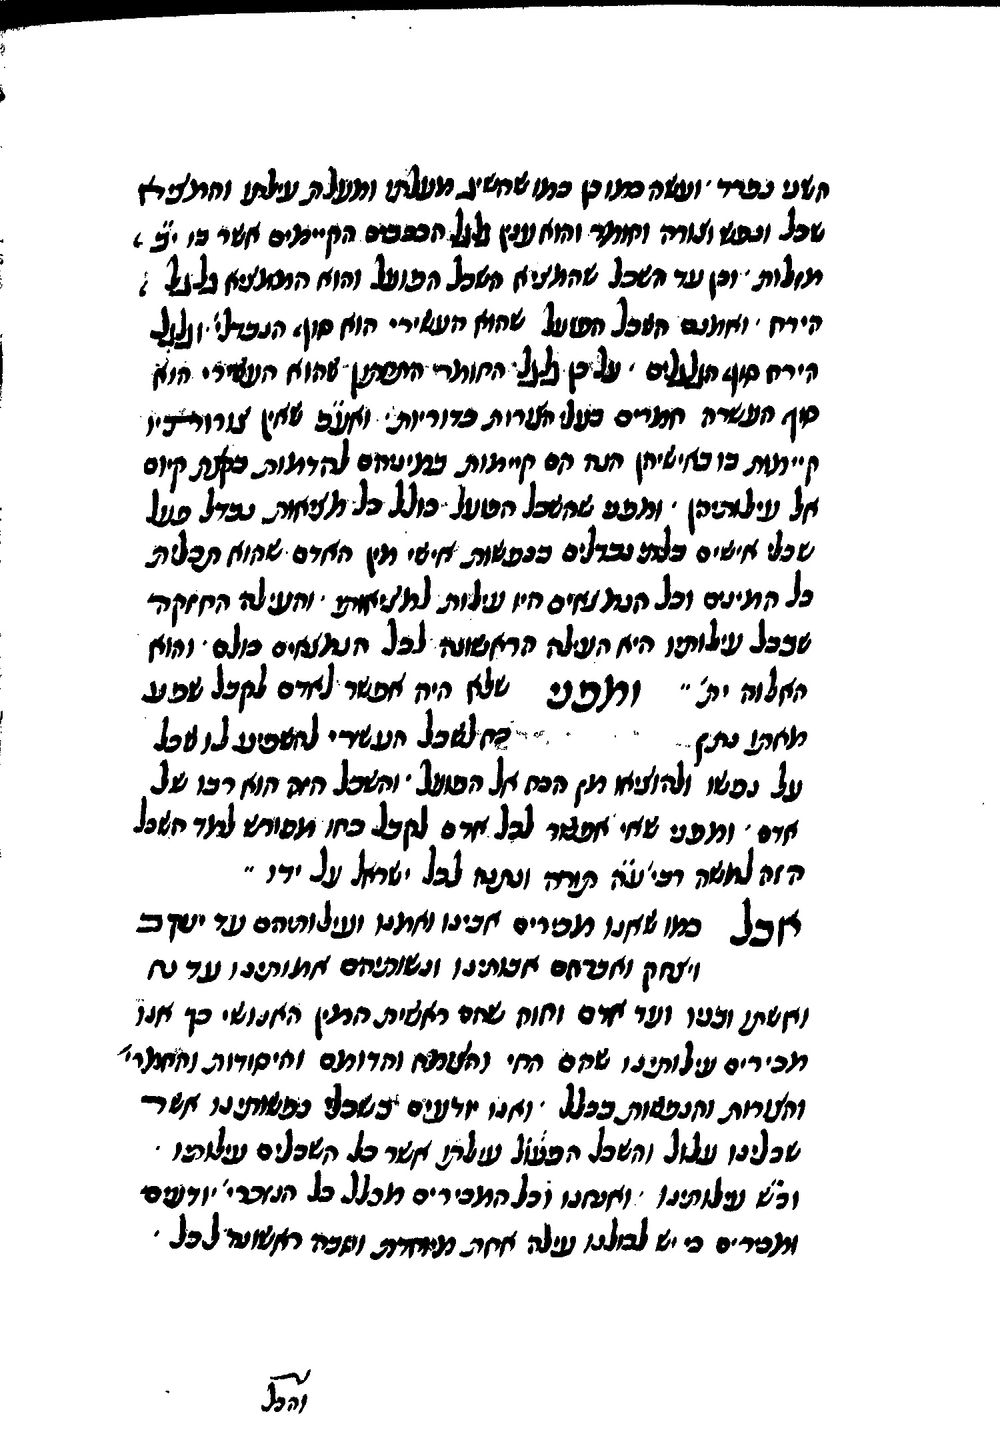 השני נפרד · ועשה כמו כן כמו שהשיג מעלתו ומעלת עילתו והמציא
שכל ונפש וצורה וחומר והוא ענין גלגל הככבים הקיימים אשר בו י״ב
מזלות · וכן עד השכל שהמציא השכל הפועל והוא הממציא גלגל
הירח · ואמנם השכל הפועל שהוא העשירי הוא סוף הנבדלי׳ · וגלגל
הירח סוף הגלגלים · על כן גלגל החומר התחתון שהוא העשירי הוא
סוף העשרה חמרים בעלי הצורות כדוריות · ואע״פ שאין צורותביו
קיימות בו באישיהן הנה הם קיימות במיניהם להדמות בקצת קיום
אל עילותיהן · ומפני שהשכל הפועל כולל כל מציאות נבדל פעל
שכלי אישים כלם נבדלים בנפשות אישי מין האדם שהוא תכלית
כל המינים וכל הנמצאים היו עילות למציאותו · והעילה החזקה
שבכל עילותיו היא העילה הראשונה לכל הנמצאים כולם · והוא
האלוה ית׳ ״ ומפני שלא היה אפשר לאדם לקבל שפע
מאתו נתן כח לשכל העשירי להשפיע לו שכל
על נפשו ולהוציאו מן הכח אל הפועל · והשכל הזה הוא רבו של
אדם · ומפני שאי אפשר לכל אדם לקבל כחו מפורש למד השכל
הזה למשה רבי׳ ע״ה תורה ונתנה לכל ישראל על ידו ״
אבל כמו שאנו מכירים אבינו ואמנו ועילותיהם עד יעקב
ויצחק ואברהם אבותינו ונשותיהם אמותינו עד נח
ואשתו ובניו ועד אדם וחוה שהם ראשית המין האנושי כך אנו
מכירים עילותינו שהם החי והצומח והדומם והיסודות והחמרי׳
והצורות והנפשות בכלל · ואנו יודעים בשכלי נפשותינו אשר
שכלינו עלול והשכל הפועל עילתו אשר כל השכלים עילותיו ·
וכ״ש עילותינו · ואנחנו וכל המכירים מכלל כל הנזכרי׳ יודעים
ומכירים כי יש לכולנו עילה אחת מיוחדת וסבה ראשונה לכל ·
והכל